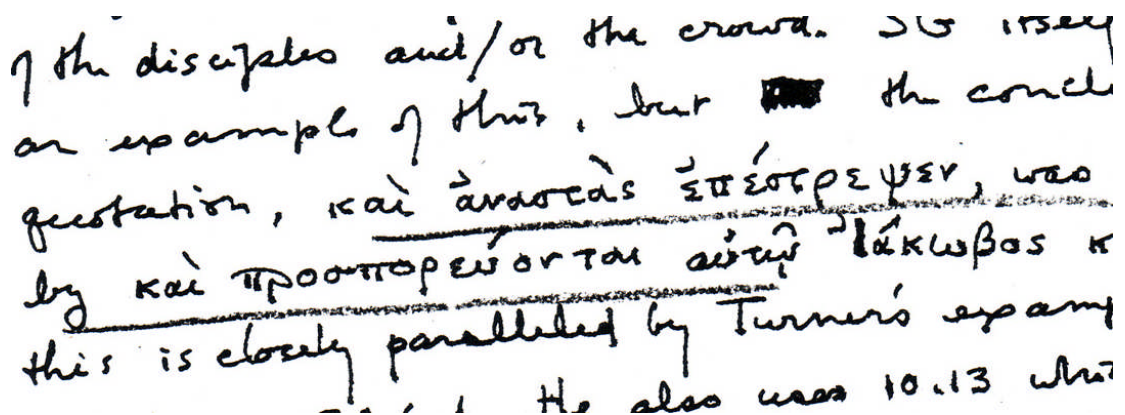 of the disciples and/or the crowd. SG itself
an example of this, but the concl
quotation, καὶ ἀναστὰς ἐπέστρεψεν, was
by καὶ προσπορεύονται αὐτῷ Ἰάκωβος κ
this is closely paralleled by Turner's examp
He also uses 10.13 whi